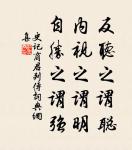 反聽之謂聰
內視之謂明
自勝之謂強
史記商君列傳詞典網